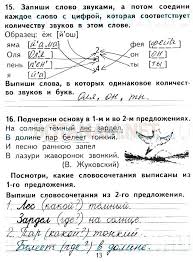 15. Запиши слово звуками, а потом соедини
каждое слово с цифрой, которая соответствует
количеству звуков в этом слове.
Образец: ёж [й'ош]
яма
фея
Оля
он
ель
ты
Выпиши слова, в которых одинаковое количест-
во звуков и букв.
Оля, он, ты.
16. Подчеркни основу в 1-м и во 2-м предложениях.
На солнце тёмный лес зардел,
В долине пар белеет тонкий,
И песню раннюю запел
В лазури жаворонок звонкий.
(В. Жуковский)
Посмотри, какие словосочетания выписаны из
1-го предложения.
Выпиши словосочетания из 2-го предложения.
1. Лес (какой?) тёмный.
Зардел (где?) на солнце.
2. Пар (какой?) тонкий.
Белеет (где?) в долине.
13